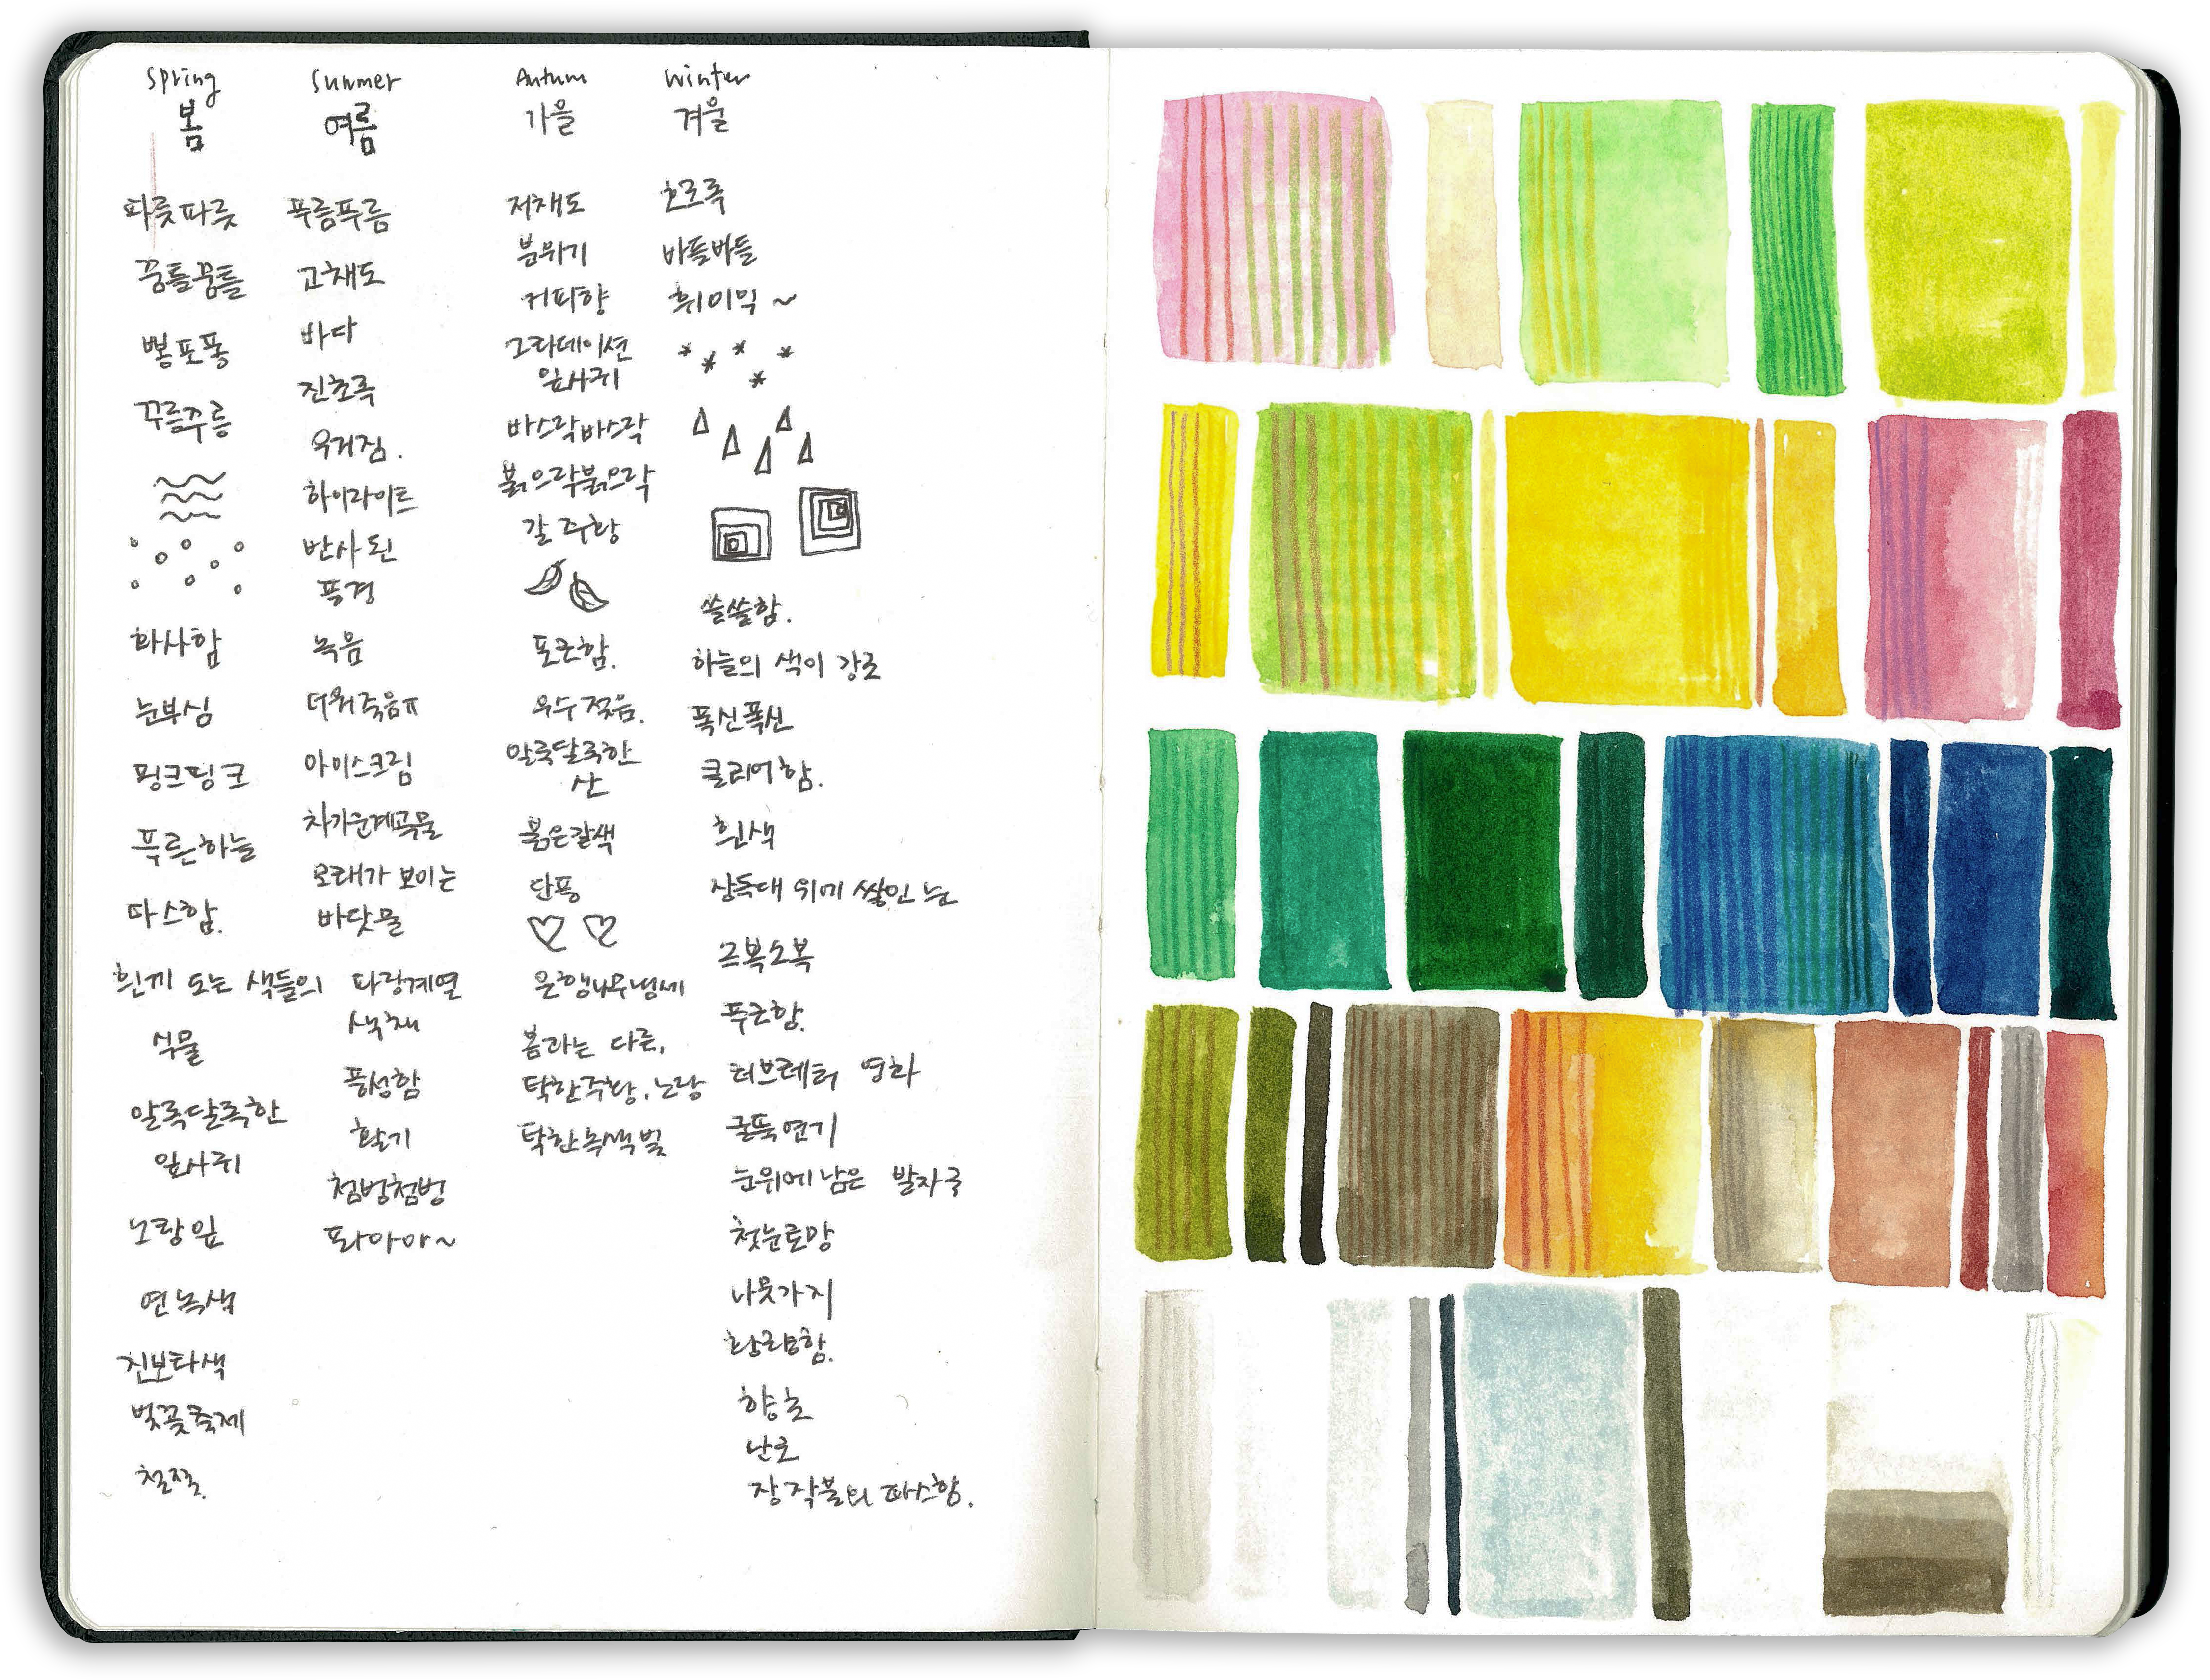 Spring
봄
파릇파릇
꿈틀꿈틀
뽕포퐁
꾸름주릉
화사함
눈부심
핑크핑크
푸른하늘
따스함.
흰끼 도는 색들의
식물
알록달록한
잎사귀
노랑잎
연녹색
진보라색
벚꽃축제
철쭉.
Summer
여름
푸름푸름
고채도
바다
진초록
우거짐.
하이라이트
반사된
풍경
녹음
더워죽음ㅠ
아이스크림
차가운계곡물
모래가 보이는
바닷물
파랑계열
색채
풍성함
활기
첨벙첨벙
파아아~
Autum
가을
저채도
분위기
커피향
그라데이션
잎사귀
바스락바스락
붉으락붉으락
갈 주황
포근함.
우수 젖음.
알록달록한
산
붉은갈색
단풍
은행나무냄새
봄과는 다른,
탁한주황, 노랑
탁한녹색빛
Winter
겨울
초록
바들바들
휘이익~
쓸쓸함.
하늘의 색이 강조
폭신폭신
클리어함.
흰색
장독대 위에 쌓인 눈
소복소복
푸근함.
러브레터 영화
굴뚝연기
눈위에 남은 발자국
첫눈로망
나뭇가지
황량함.
향초
난로
장작불의 따스함.